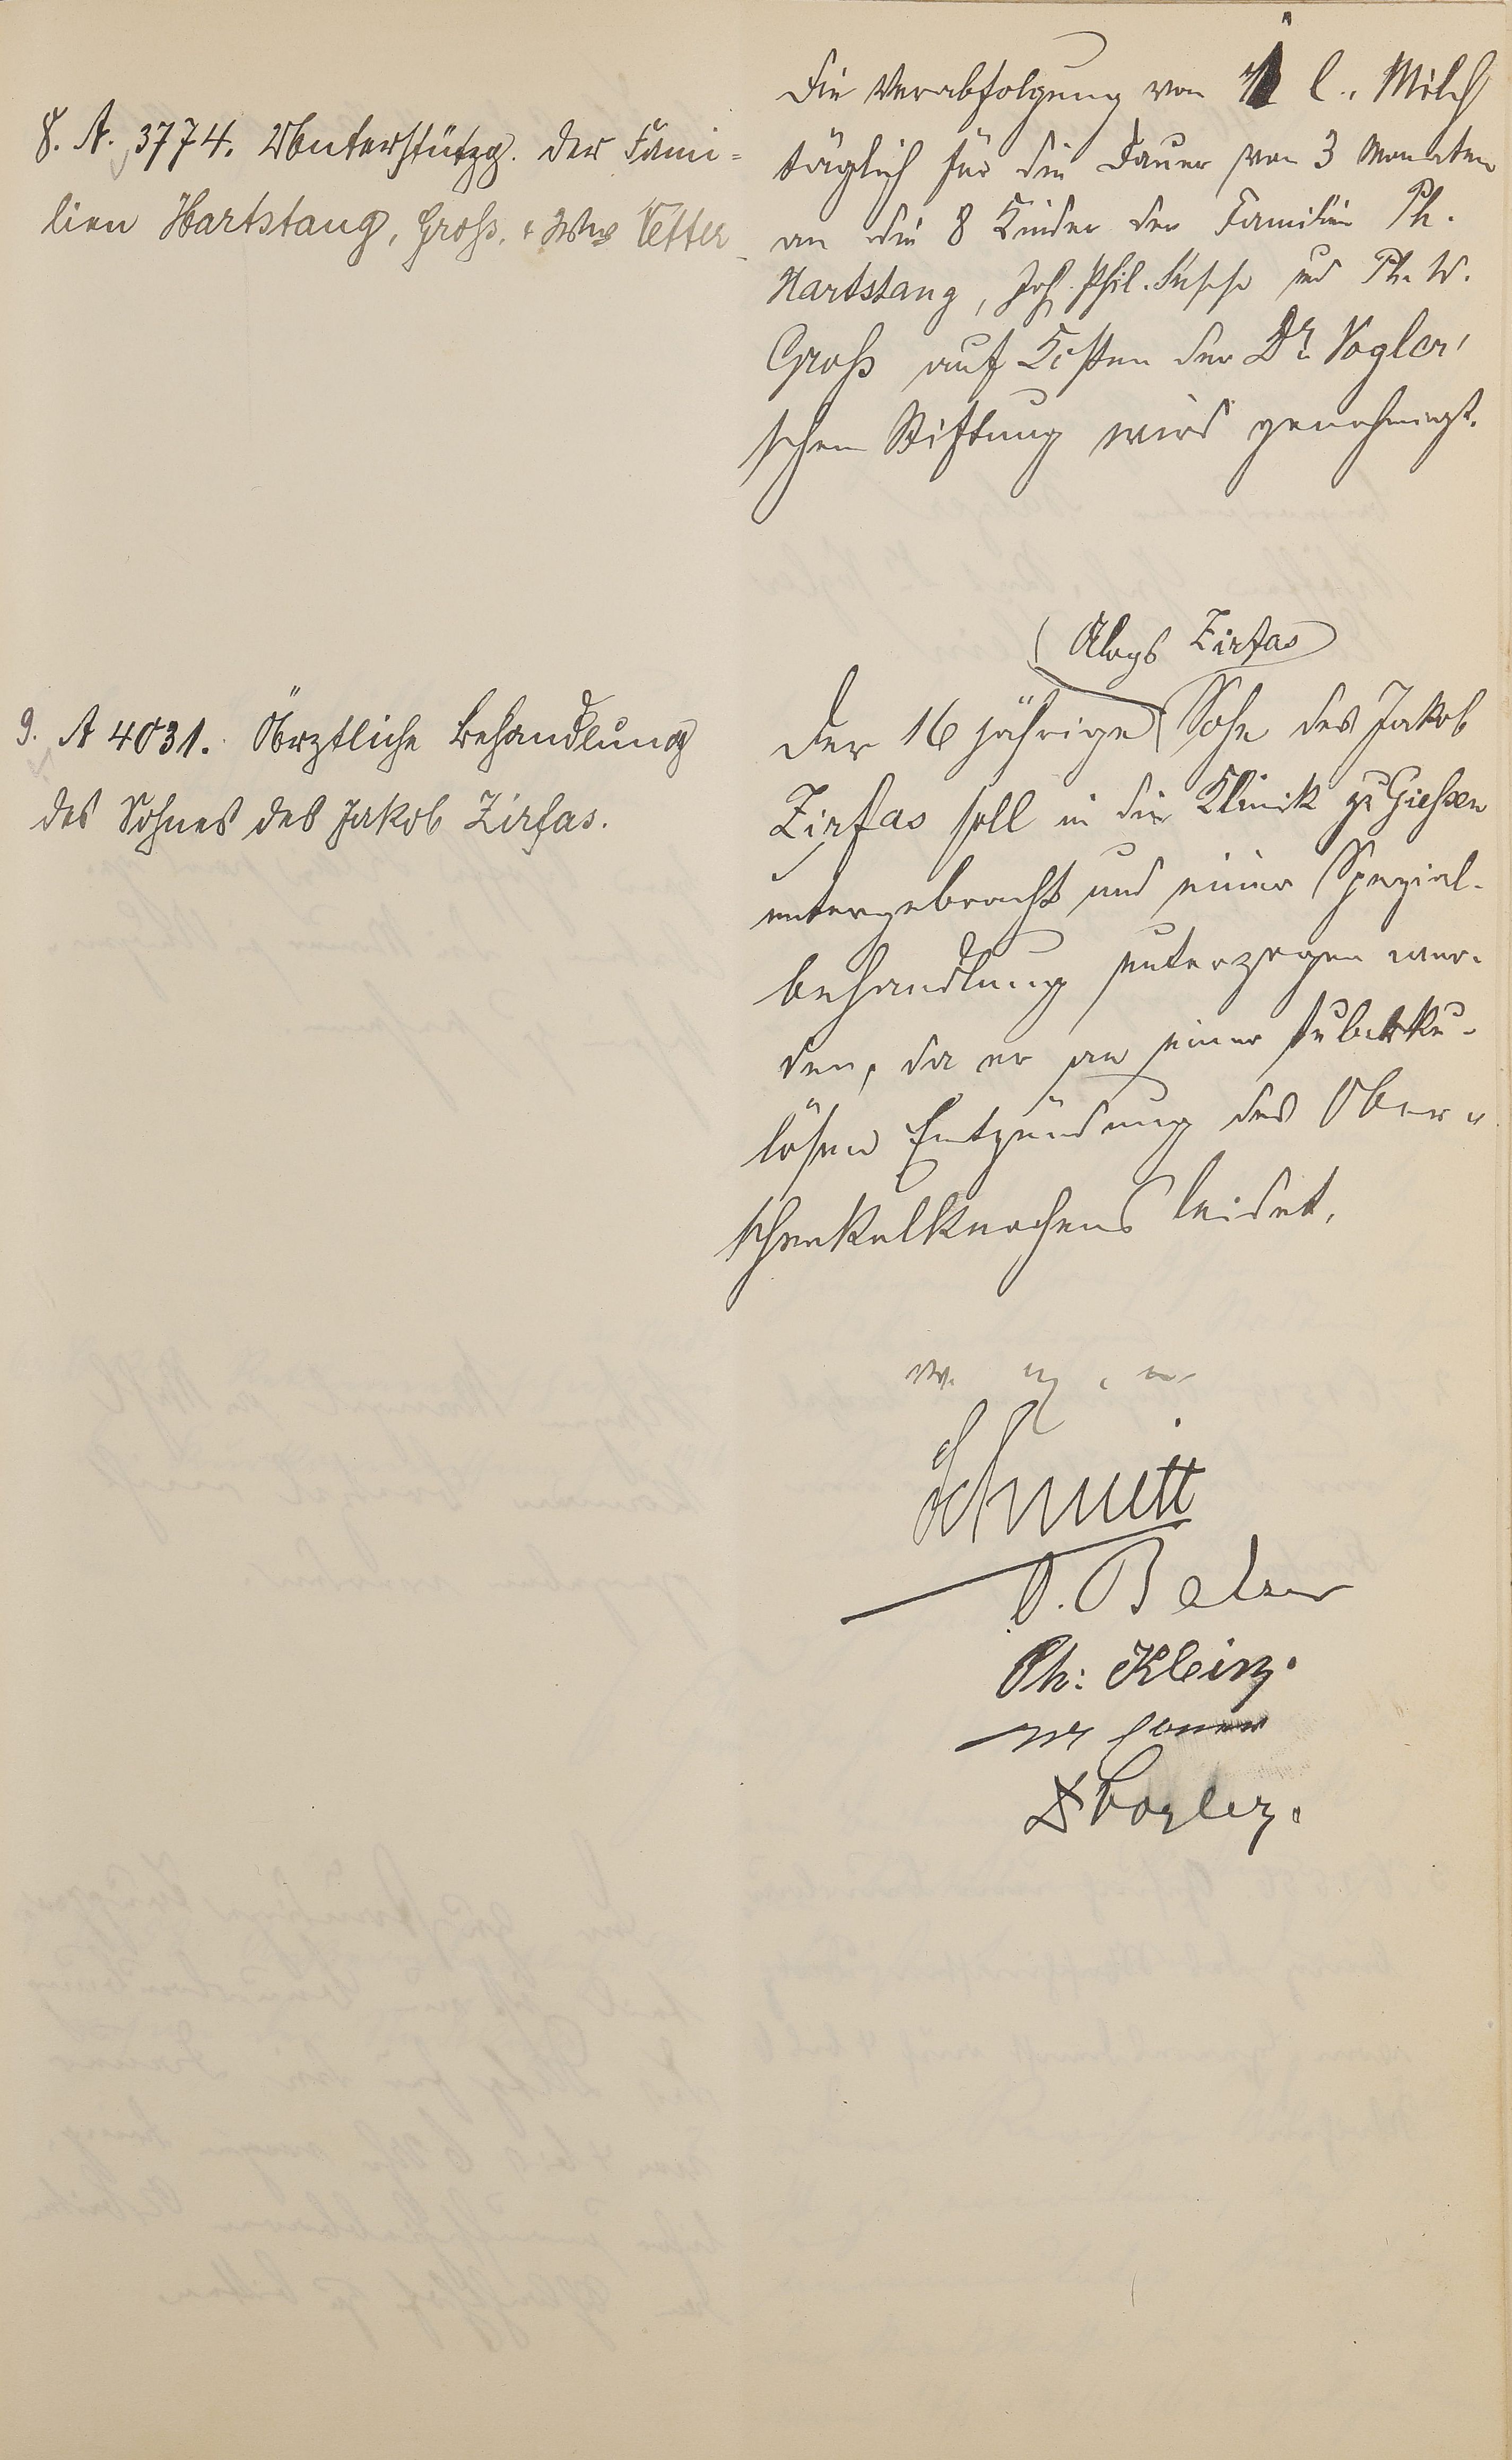 8. A. 3774. Unterstützg. der Fami-
lien Hartstang, Groß, & Wwe Vetter
Die Verabfolgung von 1 l. Milch
täglich für die Dauer von 3 Monaten
an die 8 Kinder der Familien Ph.
Hartstang, Joh. Phil. und Ph. W.
Groß auf Kosten der Dr. Vogler'
schen Stiftung wird genehmigt.
9. A 4031. Ärztliche Behandlung
des Sohnes des Jakob Zirfas.
Aloys Zirfas
Der 16 jährige Sohn des Jakob
Zirfas soll in die Klinik zu Gießen
untergebracht und einer Spezial-
behandlung unterzogen wer-
den, da er an einer tuberku-
lösen Entzündung des Ober-
schenkelknochens leidet.
Schmitt
O. Balzer
Ph: Klein.
Vogler.